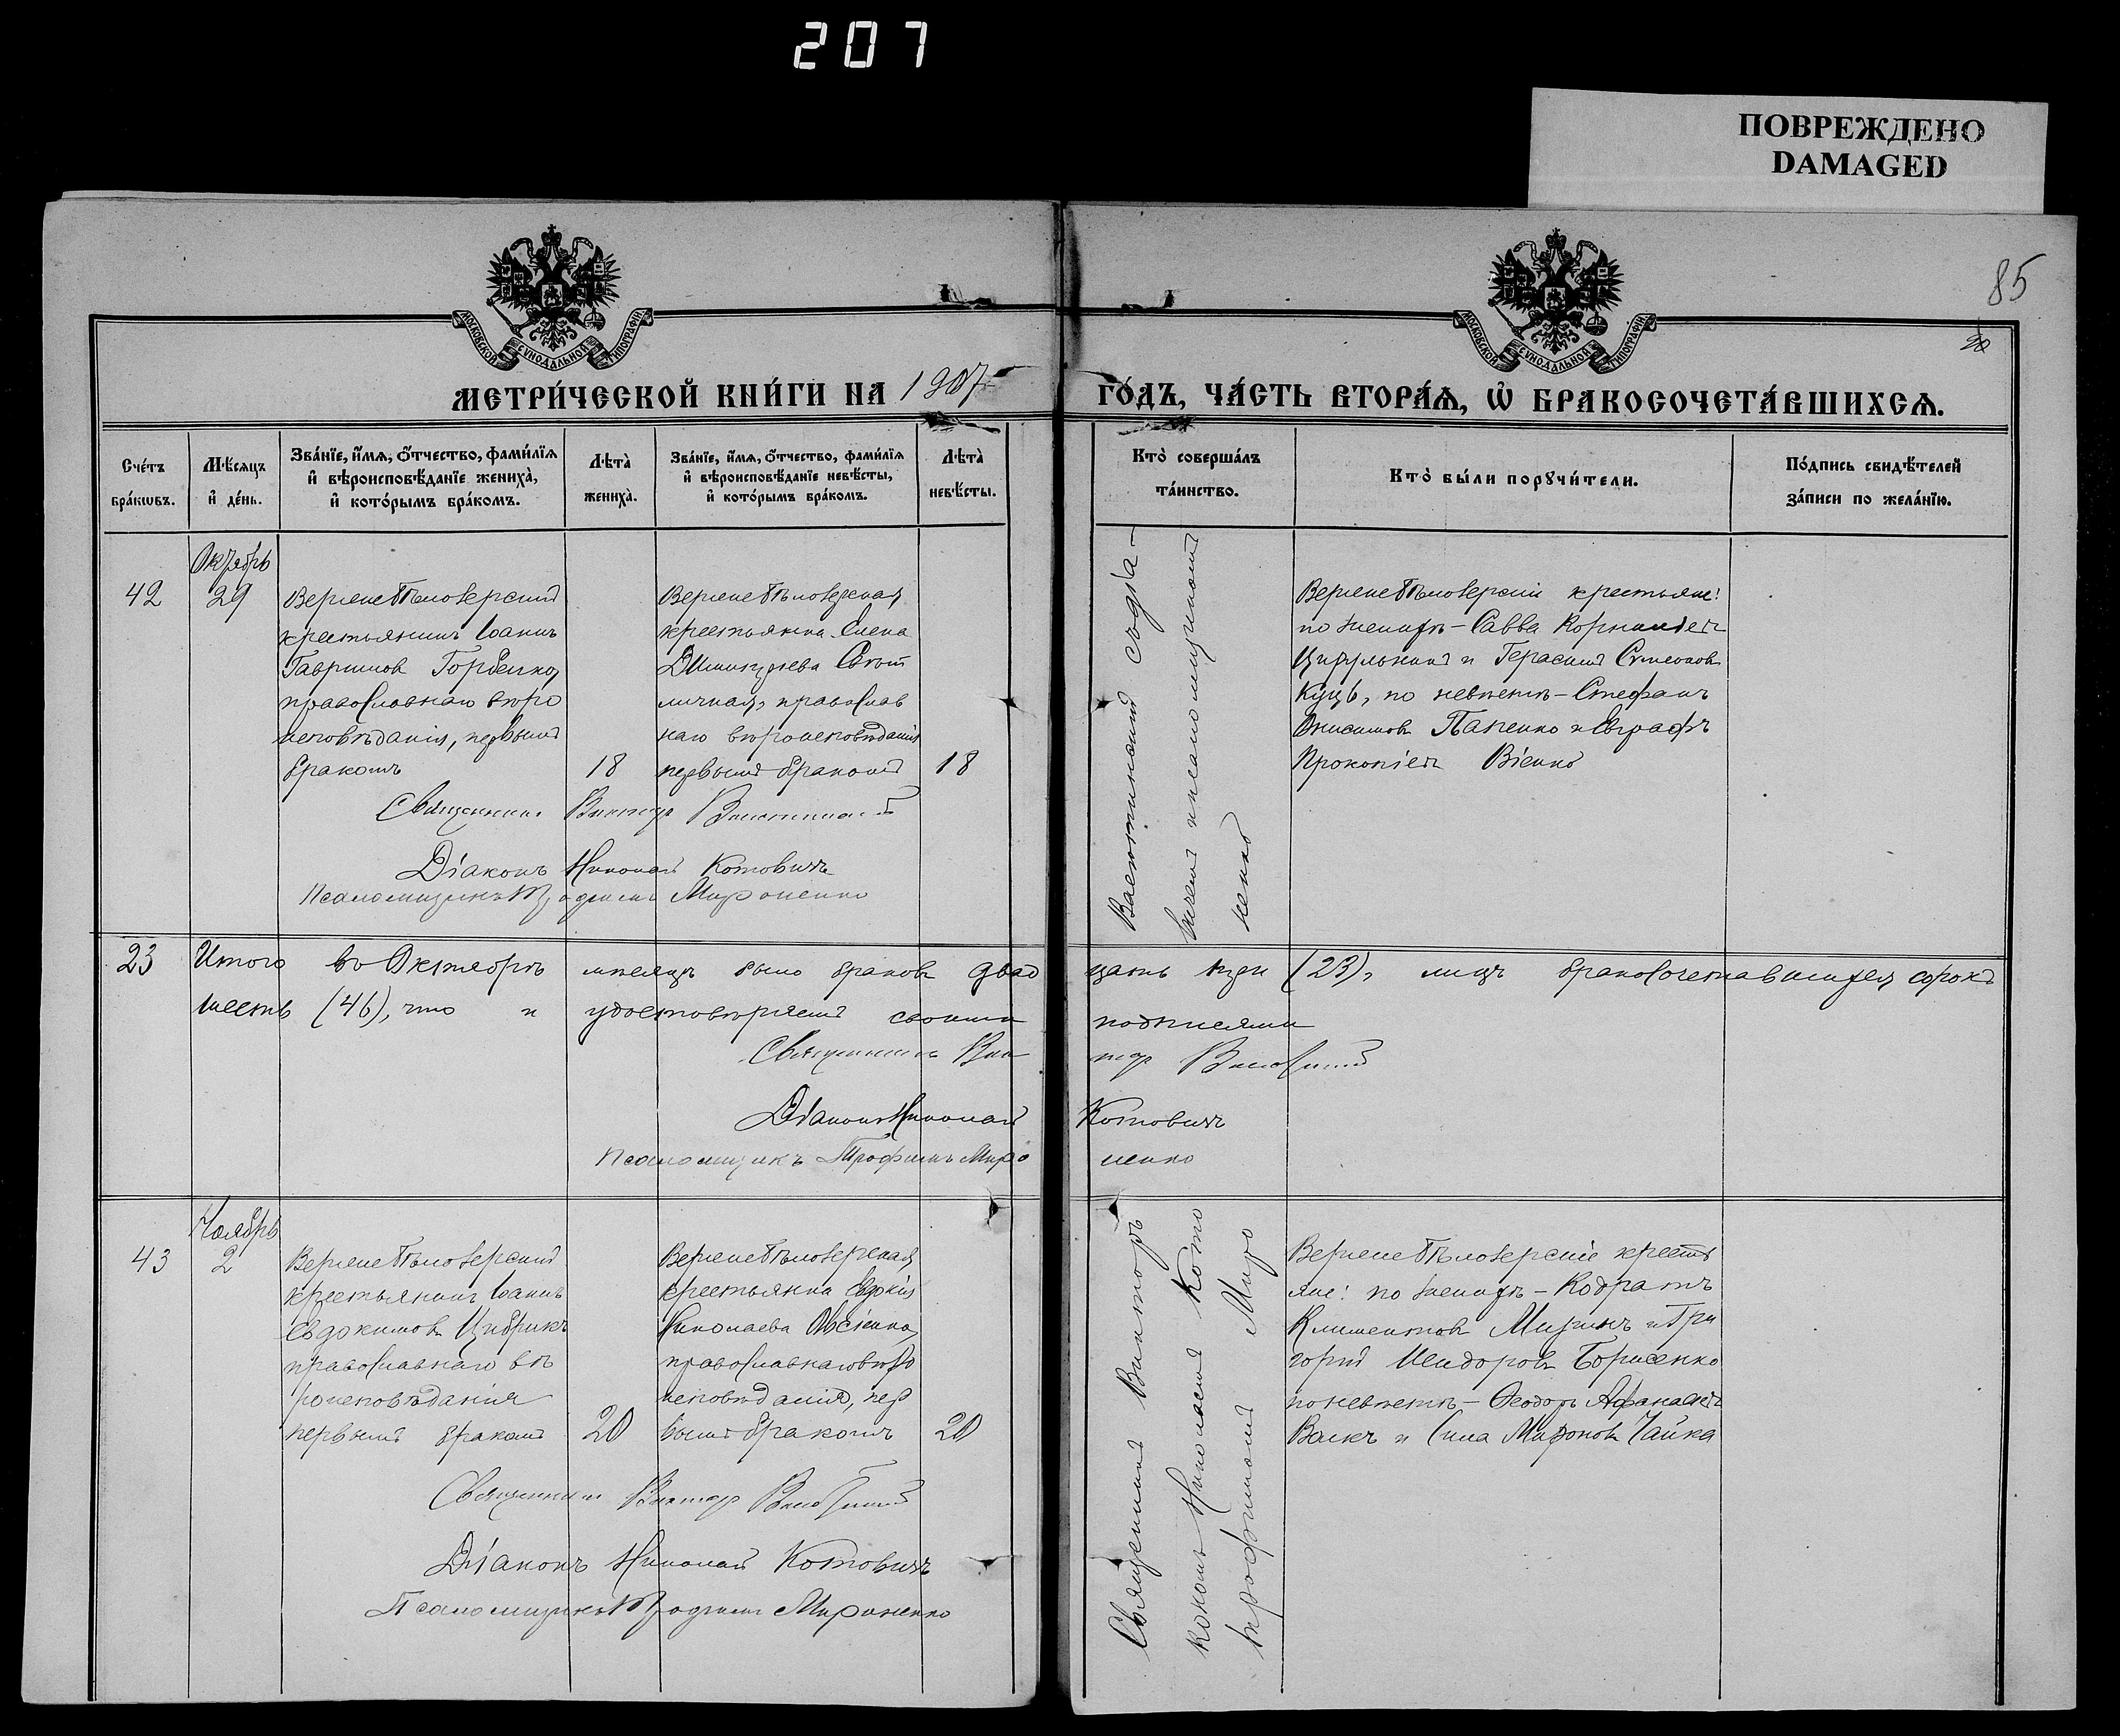 207
ПОВРЕЖДЕНО
DAMAGED
85
МОСКОВСКОЙ СѴНОДАЛЬНОЙ ТИПОГРАФІИ
МОСКОВСКОЙ СѴНОДАЛЬНОЙ ТИПОГРАФІИ
МЕТРИ́ЧЕСКОЙ КНИ́ГИ НА 1907
ГО́ДЪ, ЧА́СТЬ ВТОРА́Ѧ, Ѡ҆ БРАКОСОЧЕТА́ВШИХСѦ.
Сче́тъ бра́кѡвъ.
Мѣ́сѧцъ и҆ де́нь.
Зва́нїе, и҆́мѧ, ѻ҆́тчество, фами́лїѧ и҆ вѣроисповѣ́данїе жениха̀, и҆ кото́рымъ бра́комъ.
Лѣта̀ жениха̀.
Зва́нїе, и҆́мѧ, ѻ҆́тчество, фами́лїѧ и҆ вѣроисповѣ́данїе невѣ́сты, и҆ кото́рымъ бра́комъ.
Лѣта̀ невѣ́сты.
Кто̀ соверша́лъ та́инство.
Кто̀ бы́ли порꙋчи́тели.
По́дпись свидѣ́телей за́писи по жела́нїю.
Октябрь
42
29
Верхнебѣлозерскій
крестьянинъ Іоаннъ
Гавриловъ Горбенко,
православнаго вѣро
исповѣданія, первымъ
бракомъ
18
Верхнебѣлозерская
крестьянка Елена
православ
наго вѣроисповѣданія
первымъ бракомъ
18
Верхнебѣлозерскіе крестьяне:
по женихѣ – Савва Корниліевъ
и Герасимъ Симеоновъ
Куцъ, по невѣстѣ – Стефанъ
Онисимовъ Папенко и Евграфъ
Прокопіевъ Віенко
Священникъ Викторъ
Діаконъ Николай Котовичъ
Псаломщикъ Трофимъ Мироненко
23
Итого въ Октябрѣ мѣсяцѣ было браковъ двад
цать три (23), лицъ бракосочетавшихся сорокъ
шесть (46), что и удостовѣряемъ своими
подписями
Священникъ Вик
торъ
Діаконъ Николай
Котовичъ
Псаломщикъ Трофимъ Миро
ненко
Ноябрь
43
2
Верхнебѣлозерскій
крестьянинъ Іоаннъ
Евдокимовъ Цибрикъ
православнаго вѣ
роисповѣданія
первымъ бракомъ
20
Верхнебѣлозерская
крестьянка Евдокія
Николаева Овсіенко,
православнаго вѣро
исповѣданія, пер
вымъ бракомъ
20
Священникъ Викторъ
кономъ Николаемъ Кото
Трофимомъ Миро
Верхнебѣлозерскіе кресть
яне: по женихѣ – Кодратъ
Климентовъ и Гри
горій Исидоровъ Борисенко
по невѣстѣ – Ѳеодоръ Афанасіевъ
Волкъ и Сила Мироновъ Чайка
Священникъ Викторъ
Діаконъ Николай Котовичъ
Псаломщикъ Трофимъ Мироненко